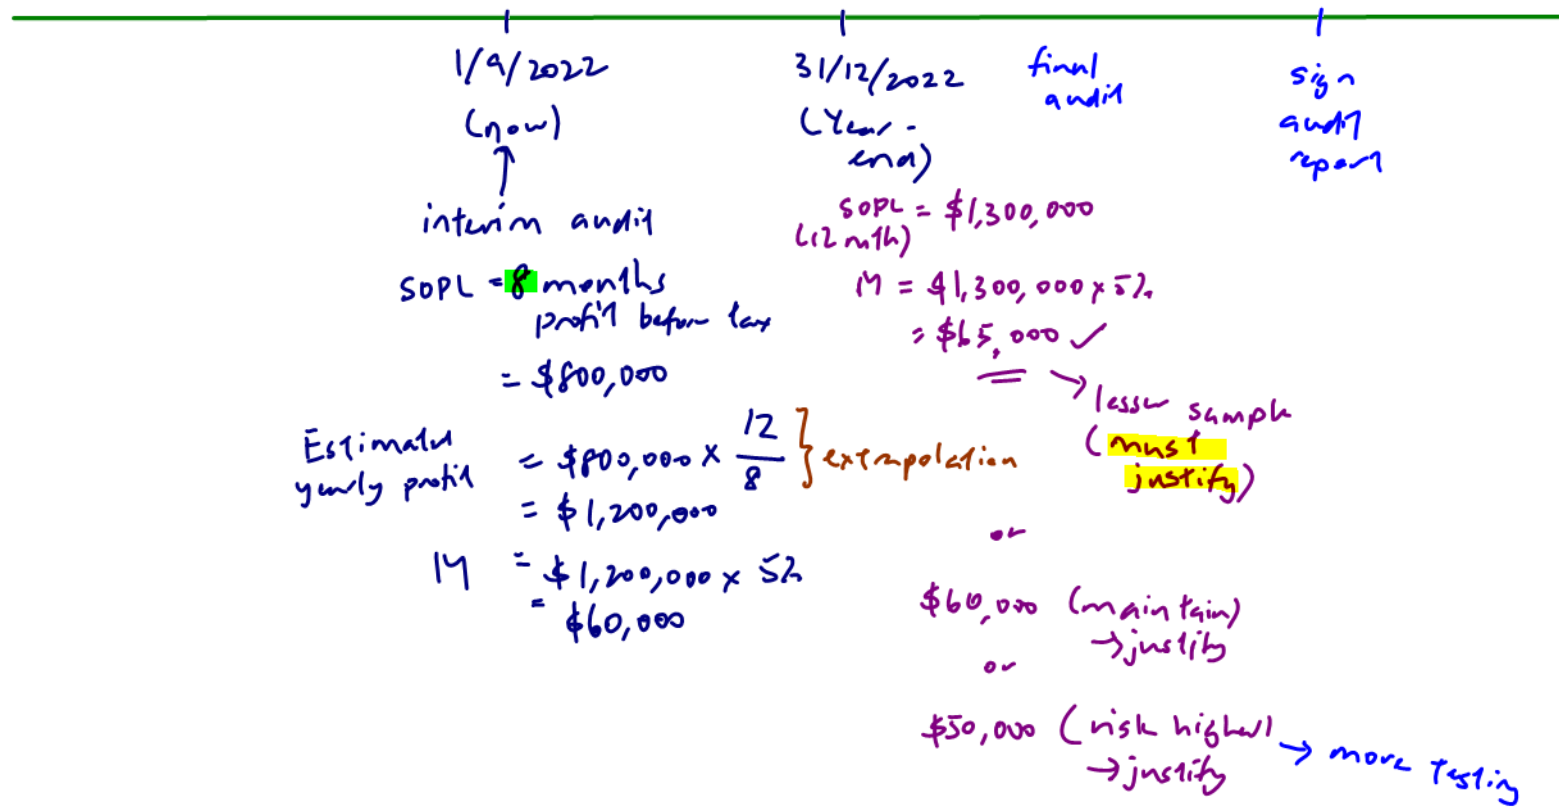 1/9/2022
(now)
interim audit
SOPL = 8 months
profit before tax
= $800,000
Estimated
yearly profit
= $800,000 × 12/8 } extrapolation
= $1,200,000
M = $1,200,000 × 5%
= $60,000
31/12/2022
(Year-
end)
SOPL = $1,300,000
(12 mth)
M = $1,300,000 × 5%
= $65,000 ✓
→ lesser sample
(must
justify)
or
$60,000 (maintain)
→ justify
or
$50,000 (risk higher)
→ justify
→ more testing
final
audit
sign
audit
report